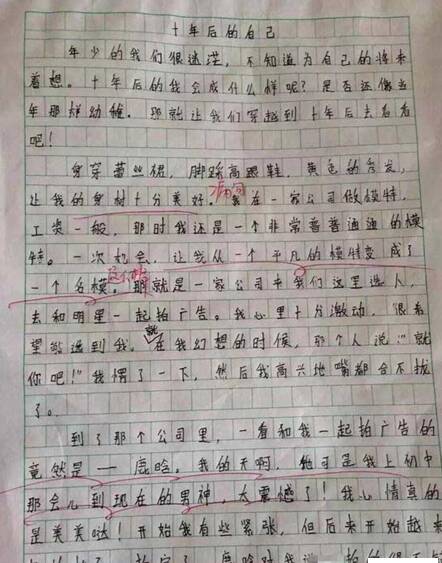 十年后的自己
年少的我们很迷茫，不知道为自己的将来
着想。十年后的我会成什么样呢？是否还像当
年那样幼稚。那就让我们穿越到十年后去看看
吧！
身穿蕾丝裙，脚踩高跟鞋，黄色的卷发，
让我的身材十分美好。我在一家公司做模特，
工资一般，那时我还是一个非常普普通通的模
特。一次机会，让我从一个平凡的模特变成了
一个名模。那就是一家公司来我们这里选人，
去和明星一起拍广告。我心里十分激动，很希
望能选到我。就在我幻想的时候，那个人说："就
你吧！"我愣了一下，然后我高兴地嘴都合不拢
了。
到了那个公司里，一看和我一起拍广告的
竟然是——鹿晗，我的天啊，他可是我上初中
那会儿到现在的男神，太震憾了！我心情真的
是美美哒！开始我有些紧张，但后来开始越来